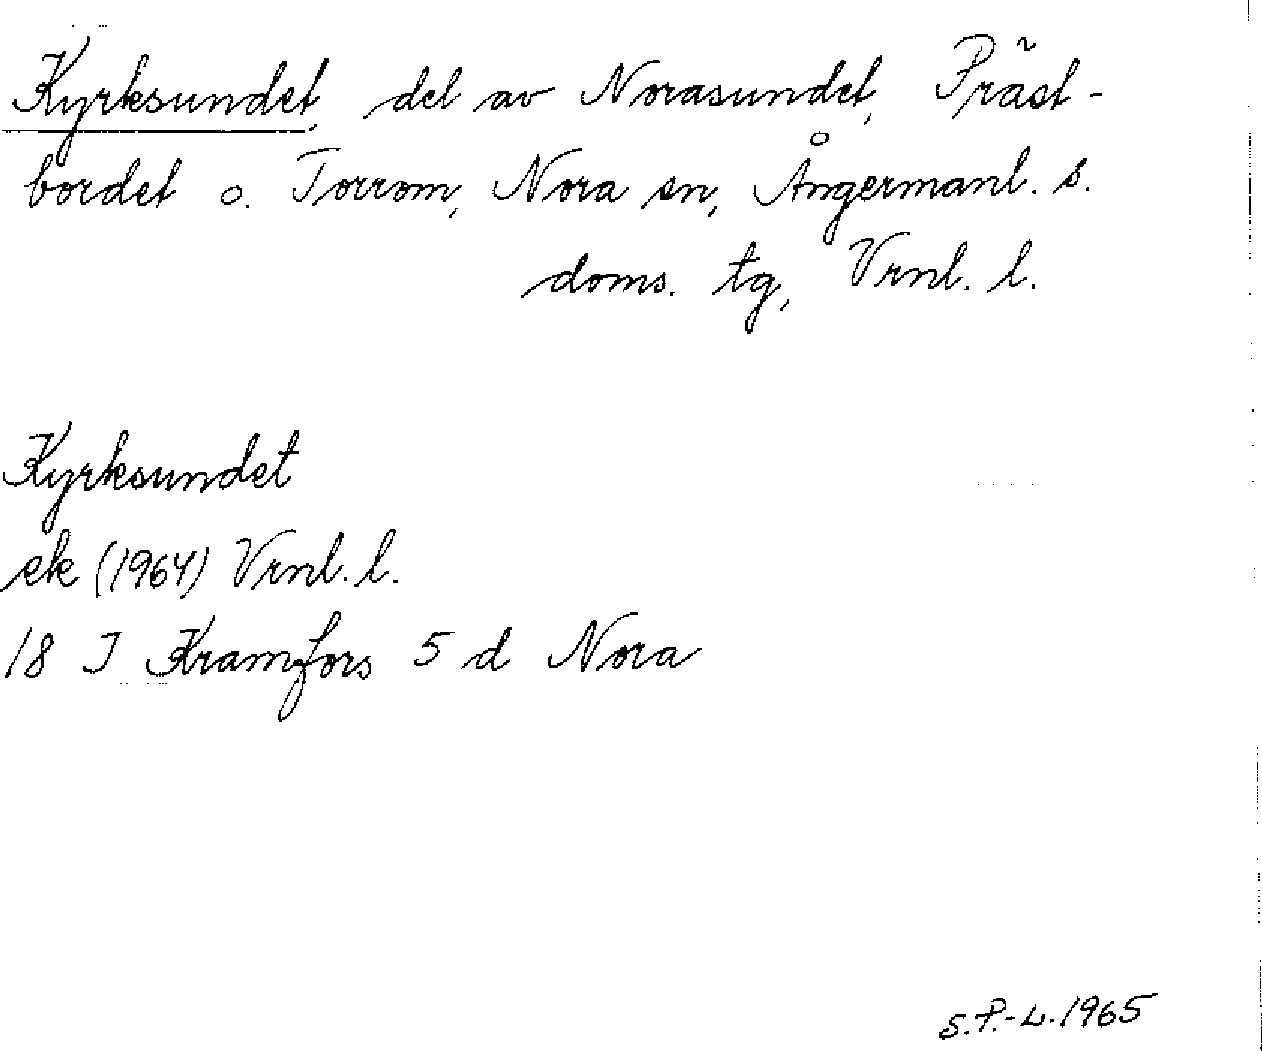 Kyrksundet, del av Norasundet, Präst-
bordet o. Torrom, Nora sn, Ångermanl. s.
doms. tg, Vrnl. l.
Kyrksundet
ek (1964) Vrnl. l.
18 J Kramfors 5 d Nora
S.P.-L. 1965